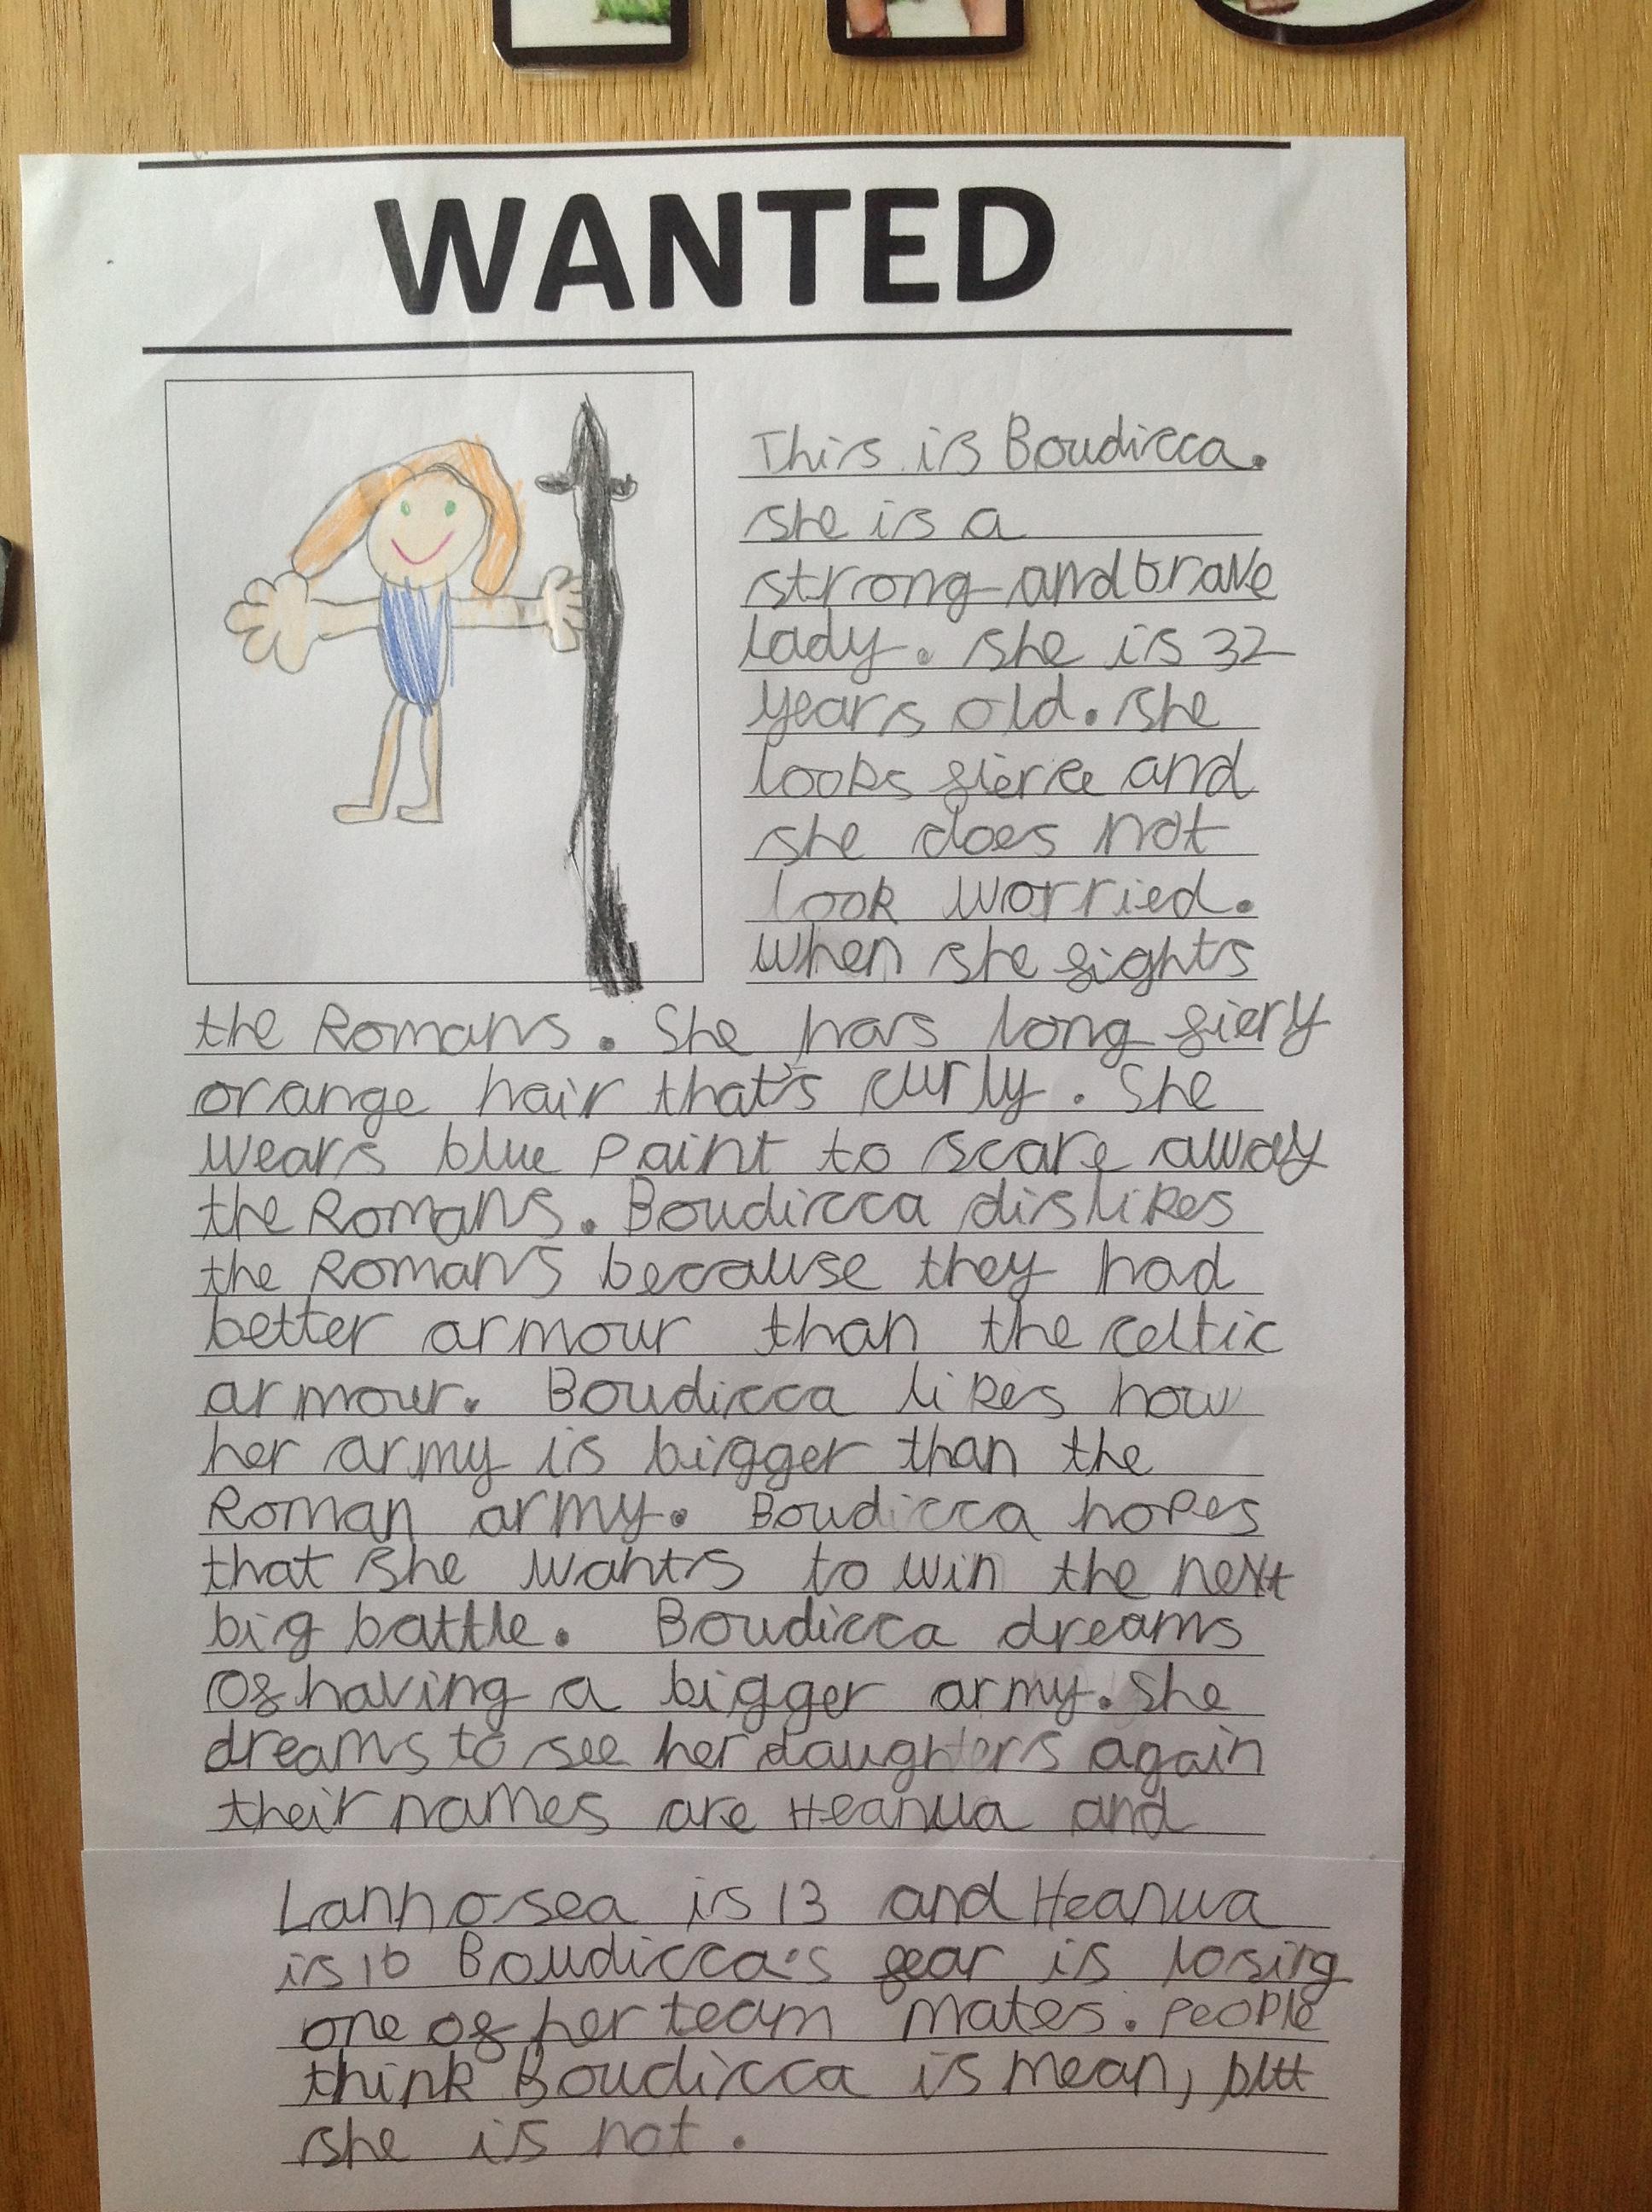 WANTED
This is Boudicca.
she is a
strong and brave
lady. she is 32
years old. she
looks fierce and
she does not
look worried.
when she fights
the Romans. She has long fiery
orange hair that's curly. She
wears blue paint to scare away
the Romans. Boudicca dislikes
the Romans because they had
better armour than the celtic
armour. Boudicca likes how
her army is bigger than the
Roman army. Boudicca hopes
that she wants to win the next
big battle. Boudicca dreams
of having a bigger army. She
dreams to see her daughters again
their names are Heanua and
Lannosea is 13 and Heanua
is 10 Boudicca's fear is losing
one of her team mates. People
think Boudicca is mean, but
she is not.